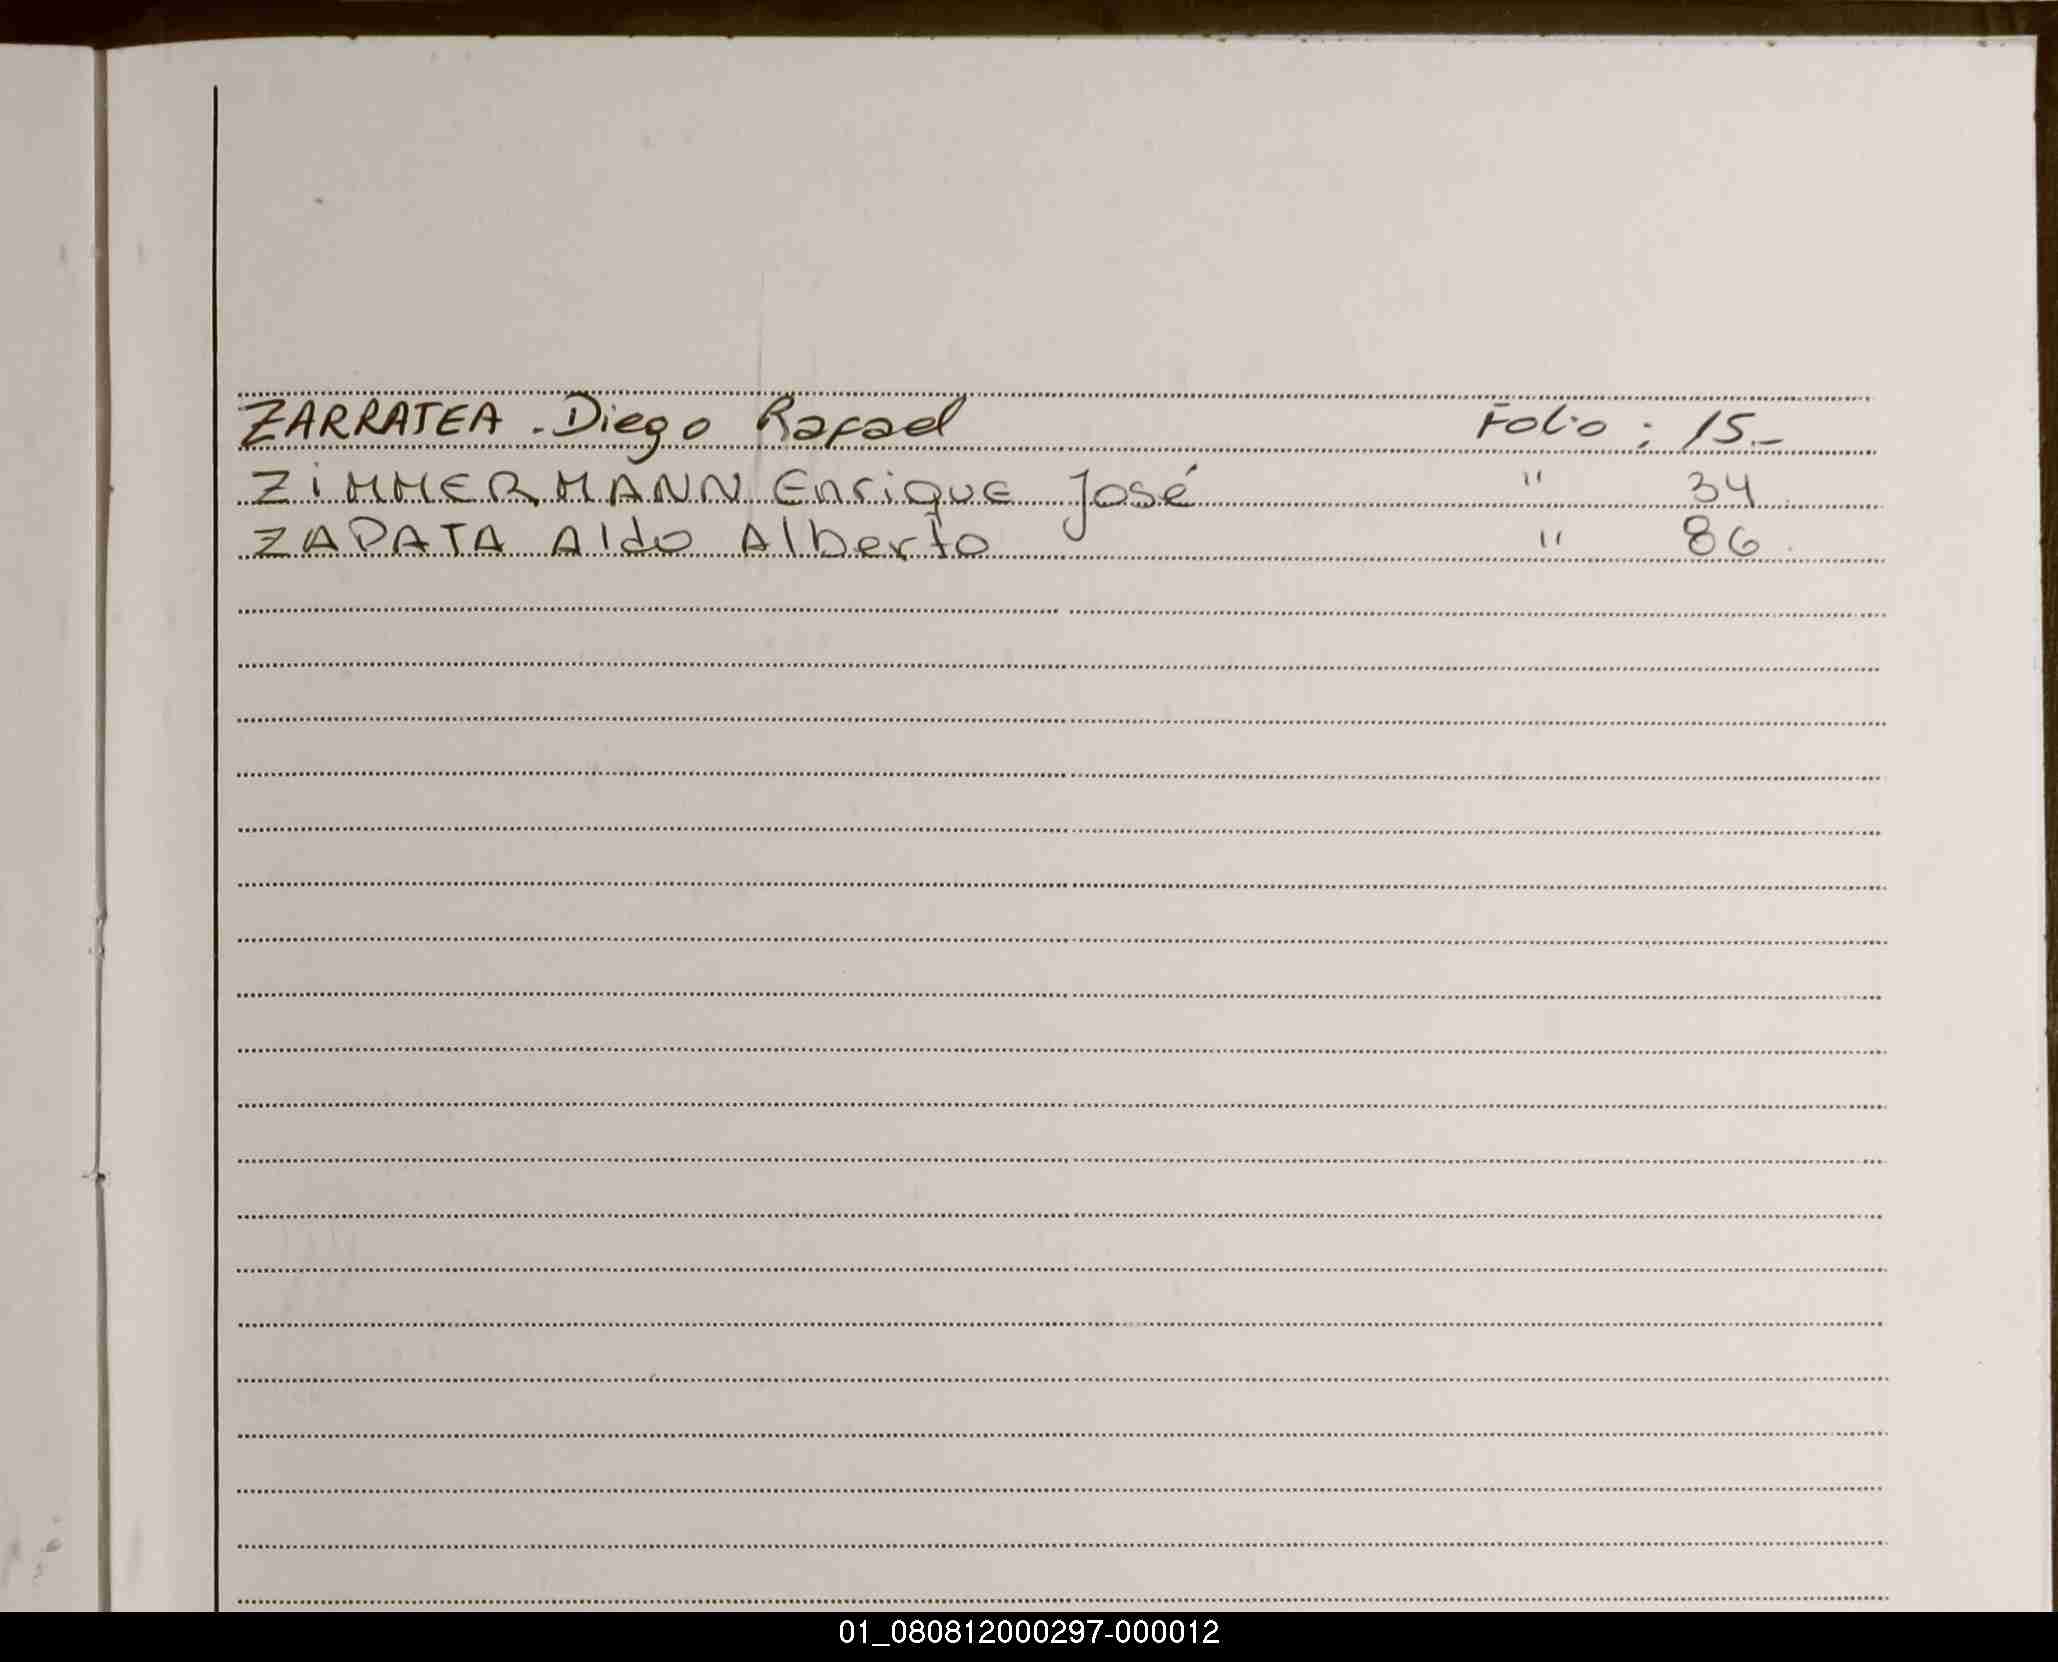 ZARRATEA . Diego Rafael Folio : 15.-
ZIMMERMANN Enrique José " 34
ZAPATA Aldo Alberto " 86
01_080812000297-000012